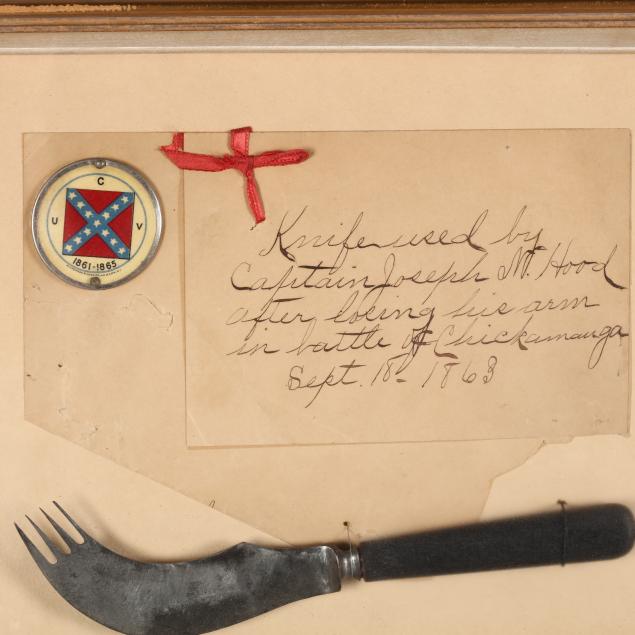 C
U V
1861-1865
Knife used by
Captain Joseph M. Hood
after losing his arm
in battle of Chickamauga
Sept. 18- 1863